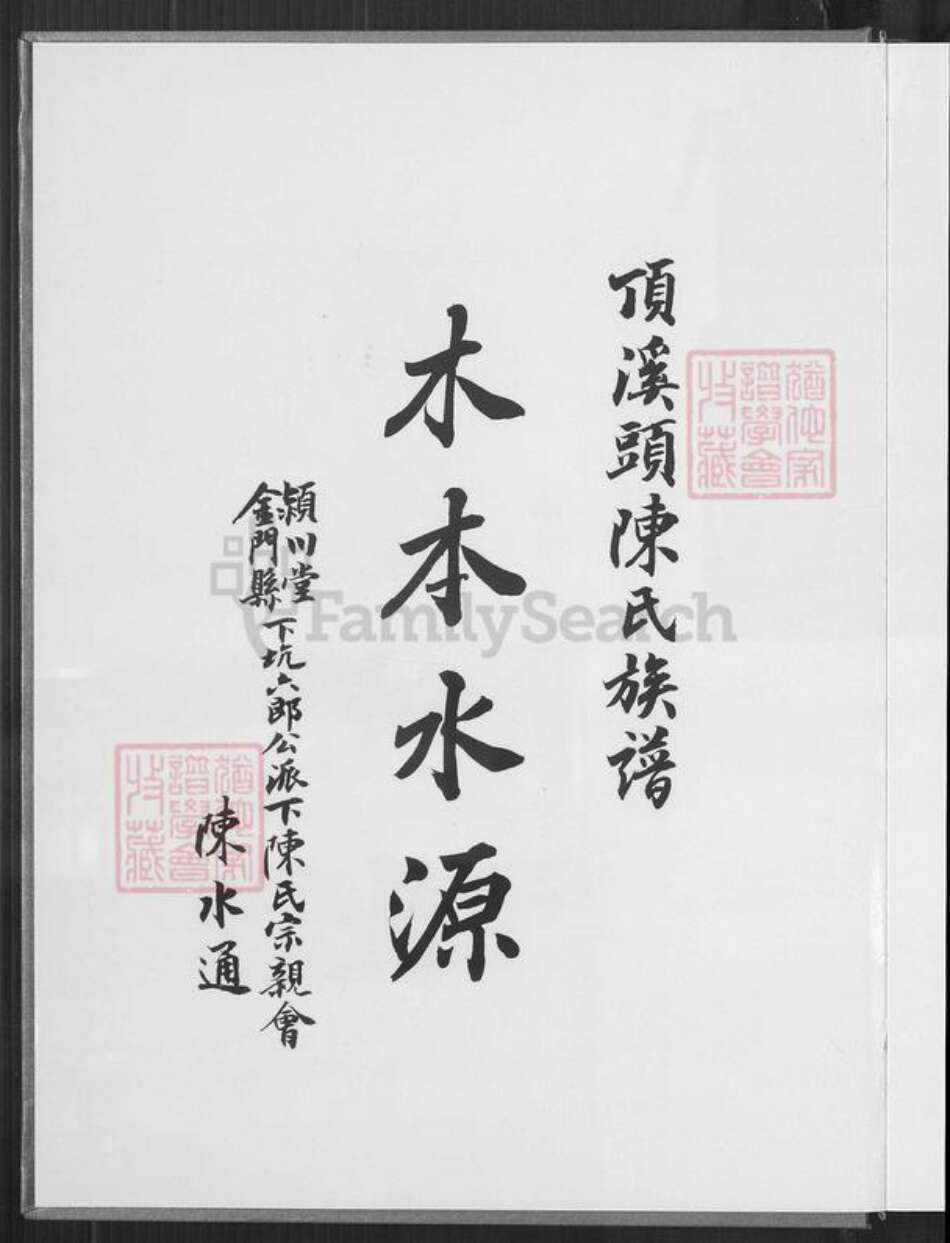 頂溪頭陳氏族譜
猶他家
譜學會
收藏
木本水源
潁川堂
金門縣
下坑六郎公派下陳氏宗親會
陳水通
猶他家
譜學會
收藏
FamilySearch